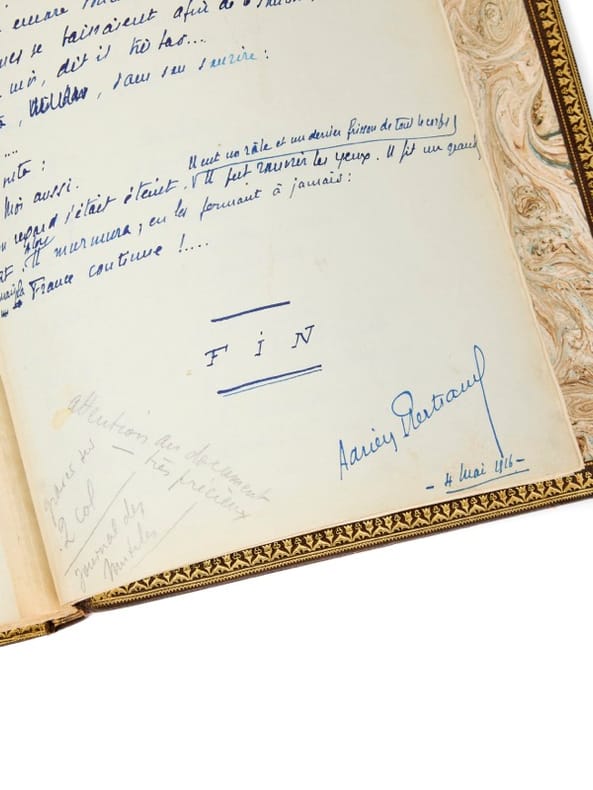 encore
se baissaient afin de
moi, dit-il très bas...
, sans son sourire :
....
Moi aussi.
Il eut un râle et un dernier frisson de tout le corps
regard s'était éteint. Il put rouvrir les yeux. Il fit un grand
Il murmura, en les fermant à jamais :
France continue !....
FIN
Adrien Bertrand
- 4 Mai 1916 -
attention au document
— très précieux
gravés sur
2 col
Journal des
Mutilés